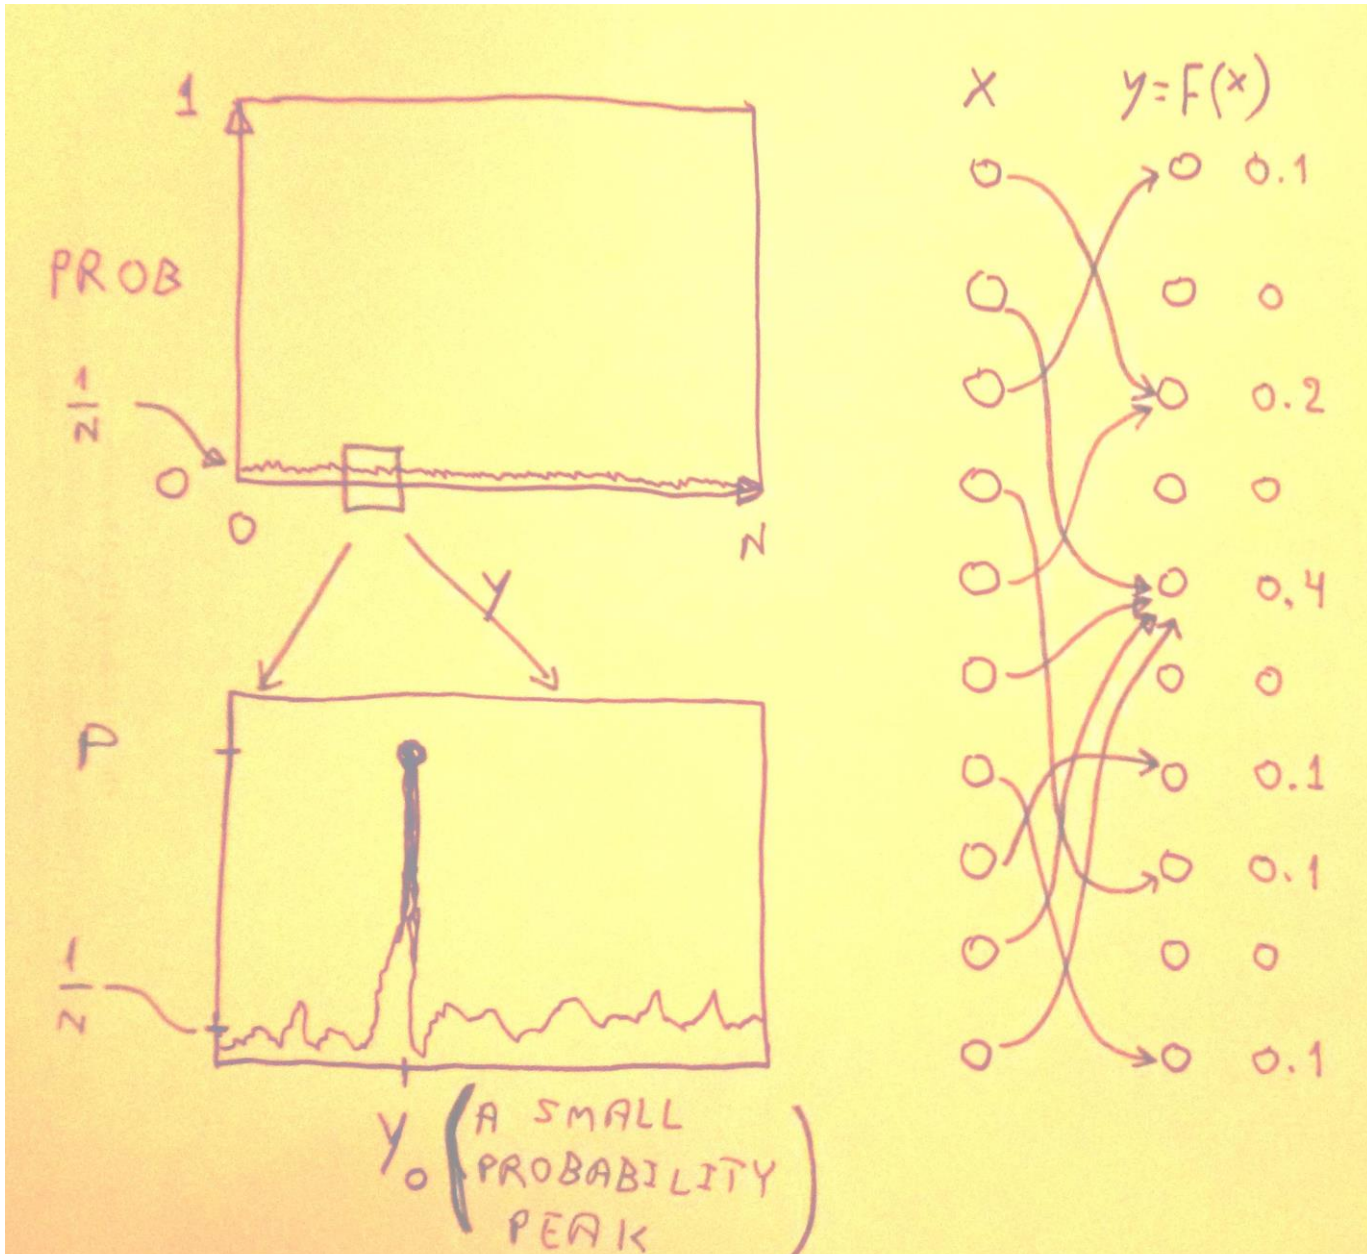 1
PROB
1
N
0
0
N
Y
P
1
N
Y₀ (A SMALL
PROBABILITY
PEAK)
X
y=F(x)
0.1
0
0.2
0
0.4
0
0.1
0.1
0
0.1